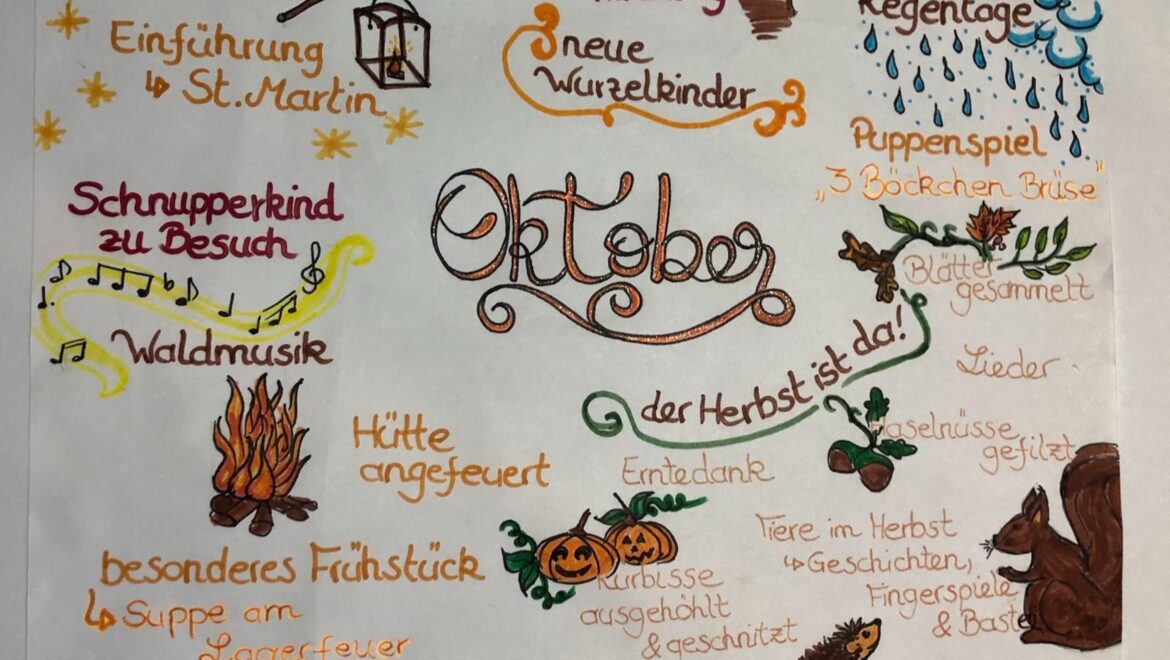 Einführung
↳ St. Martin
neue
Wurzelkinder
Regentage
Puppenspiel
„3 Böckchen Brüse“
Schnupperkind
zu Besuch
Oktober
Blätter
gesammelt
Waldmusik
der Herbst ist da!
Lieder
Hütte
angefeuert
Erntedank
Haselnüsse
gefilzt
besonderes Frühstück
↳ Suppe am
Lagerfeuer
Kürbisse
ausgehöhlt
& geschnitzt
Tiere im Herbst
↳ Geschichten,
Fingerspiele
&